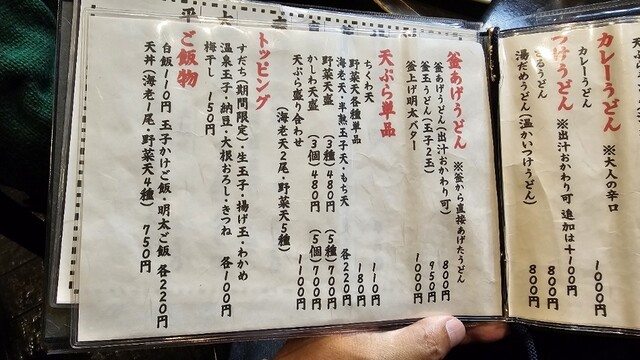 カレーうどん ※大人の辛口
カレーうどん 1000円
つけうどん ※出汁おかわり可 追加は+100円
ざるうどん 800円
湯だめうどん(温かいつけうどん) 800円
釜あげうどん ※釜から直接あげたうどん
釜あげうどん(出汁おかわり可) 800円
釜玉うどん(玉子2玉) 950円
釜上げ明太バター 1000円
天ぷら単品
ちくわ天 110円
野菜天各種単品 180円
海老天・半熟玉子天・もち天 各220円
野菜天盛 (3種)480円 (5種)700円
かしわ天盛 (3個)480円 (5個)700円
天ぷら盛り合わせ
(海老天2尾・野菜天5種) 1100円
トッピング
すだち(期間限定)・生玉子・揚げ玉・わかめ
温泉玉子・納豆・大根おろし・きつね 各100円
梅干し 150円
ご飯物
白飯110円 玉子かけご飯・明太ご飯 各220円
天丼(海老1尾・野菜天4種) 750円